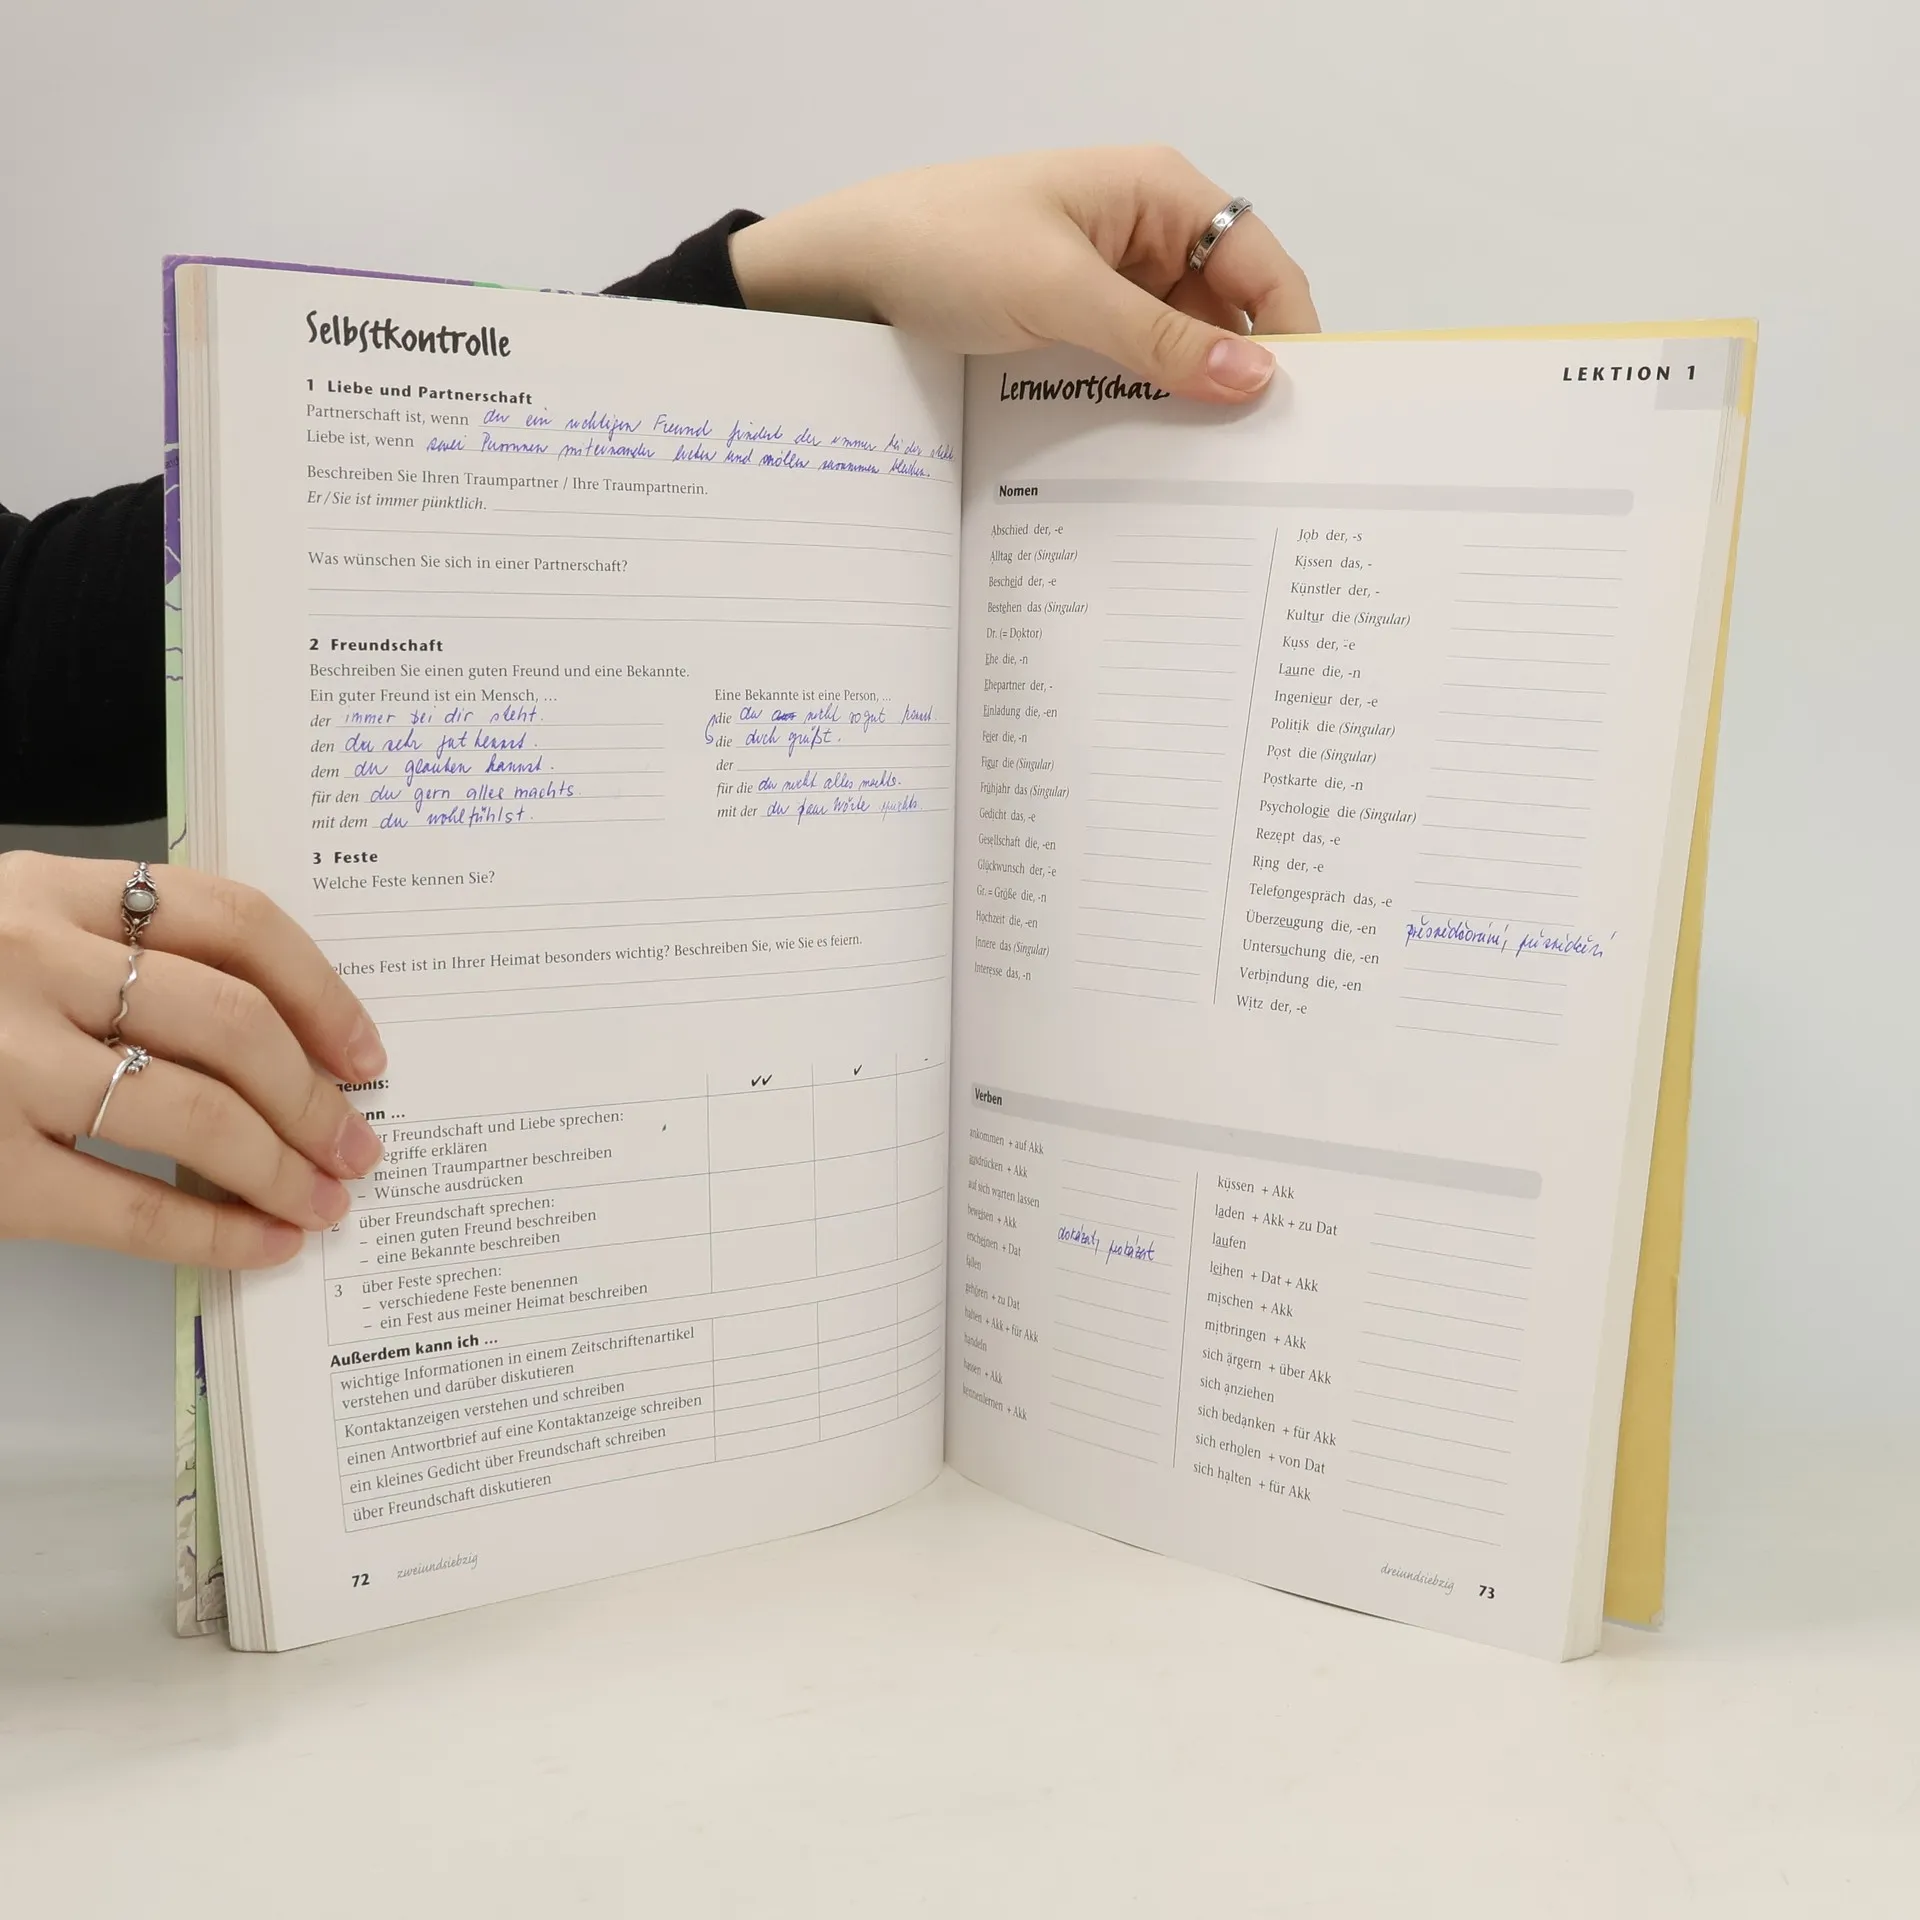 Selbstkontrolle
1 Liebe und Partnerschaft
Partnerschaft ist, wenn du ein richtigen Freund findest der immer bei dir steht
Liebe ist, wenn zwei Personnen miteinander leben und wollen zusammen bleiben.
Beschreiben Sie Ihren Traumpartner / Ihre Traumpartnerin.
Er/Sie ist immer pünktlich.
Was wünschen Sie sich in einer Partnerschaft?
2 Freundschaft
Beschreiben Sie einen guten Freund und eine Bekannte.
Ein guter Freund ist ein Mensch, ...
der immer bei dir steht.
den du sehr gut kennst.
dem du glauben kannst.
für den du gern alles machts.
mit dem du wohlfühlst.
Eine Bekannte ist eine Person, ...
die du nicht so gut kennst.
die dich grüßt.
der
für die du nicht alles machts.
mit der du paar Wörte
3 Feste
Welche Feste kennen Sie?
elches Fest ist in Ihrer Heimat besonders wichtig? Beschreiben Sie, wie Sie es feiern.
gebnis:
✓✓ ✓ -
nn ...
er Freundschaft und Liebe sprechen:
egriffe erklären
– meinen Traumpartner beschreiben
– Wünsche ausdrücken
2 über Freundschaft sprechen:
– einen guten Freund beschreiben
– eine Bekannte beschreiben
3 über Feste sprechen:
– verschiedene Feste benennen
– ein Fest aus meiner Heimat beschreiben
Außerdem kann ich ...
wichtige Informationen in einem Zeitschriftenartikel
verstehen und darüber diskutieren
Kontaktanzeigen verstehen und schreiben
einen Antwortbrief auf eine Kontaktanzeige schreiben
ein kleines Gedicht über Freundschaft schreiben
über Freundschaft diskutieren
72 zweiundsiebzig
LEKTION 1
Lernwortschatz
Nomen
Abschied der, -e
Alltag der (Singular)
Bescheid der, -e
Bestehen das (Singular)
Dr. (= Doktor)
Ehe die, -n
Ehepartner der, -
Einladung die, -en
Feier die, -n
Figur die (Singular)
Frühjahr das (Singular)
Gedicht das, -e
Gesellschaft die, -en
Glückwunsch der, ¨-e
Gr. = Größe die, -n
Hochzeit die, -en
Innere das (Singular)
Interesse das, -n
Job der, -s
Kissen das, -
Künstler der, -
Kultur die (Singular)
Kuss der, ¨-e
Laune die, -n
Ingenieur der, -e
Politik die (Singular)
Post die (Singular)
Postkarte die, -n
Psychologie die (Singular)
Rezept das, -e
Ring der, -e
Telefongespräch das, -e
Überzeugung die, -en přesvědčování, přesvědčení
Untersuchung die, -en
Verbindung die, -en
Witz der, -e
Verben
ankommen + auf Akk
ausdrücken + Akk
auf sich warten lassen
beweisen + Akk dokázat, prokázat
erscheinen + Dat
fallen
gehören + zu Dat
halten + Akk + für Akk
handeln
hassen + Akk
kennenlernen + Akk
küssen + Akk
laden + Akk + zu Dat
laufen
leihen + Dat + Akk
mischen + Akk
mitbringen + Akk
sich ärgern + über Akk
sich anziehen
sich bedanken + für Akk
sich erholen + von Dat
sich halten + für Akk
dreiundsiebzig 73